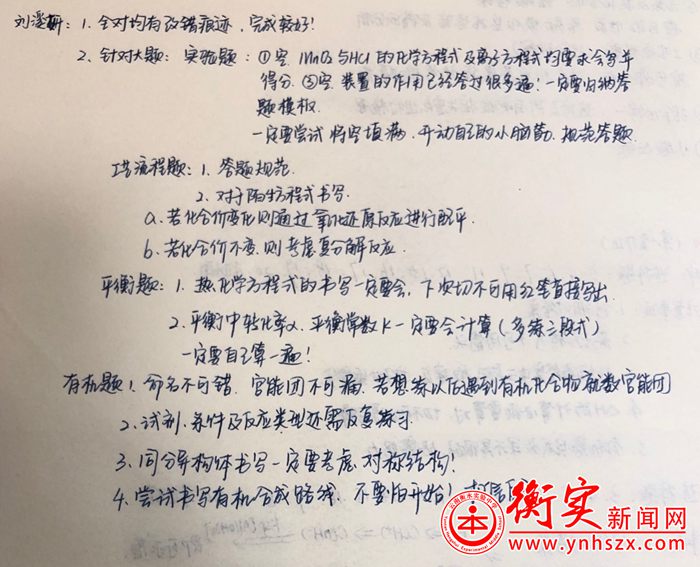 刘滢妍：1. 全对均有改错痕迹，完成较好！
2. 针对大题：实验题：①空 MnO₂与HCl的化学方程式及离子方程式均要求会写并
得分. ③空 装置的作用已经答过很多遍！一定要归纳答
题模板.
一定要尝试将空填满. 开动自己的小脑筋. 规范答题
工艺流程题：1. 答题规范.
2. 对于陌生方程式书写.
a. 若化合价变化则通过氧化还原反应进行配平.
b. 若化合价不变. 则考虑复分解反应.
平衡题：1. 热化学方程式的书写一定要会，下次切不可用红笔直接写出.
2. 平衡中转化率α. 平衡常数K一定要会计算（多练三段式）
一定要自己算一遍！
有机题1. 命名不可错. 官能团不可漏. 若想练以后遇到有机化合物就数官能团
2. 试剂. 条件及反应类型还需反复练习
3. 同分异构体书写一定要考虑对称结构！
4. 尝试书写有机合成路线，不要怕开始！
云南衡水实验中学
衡实新闻网
www.ynhszx.com